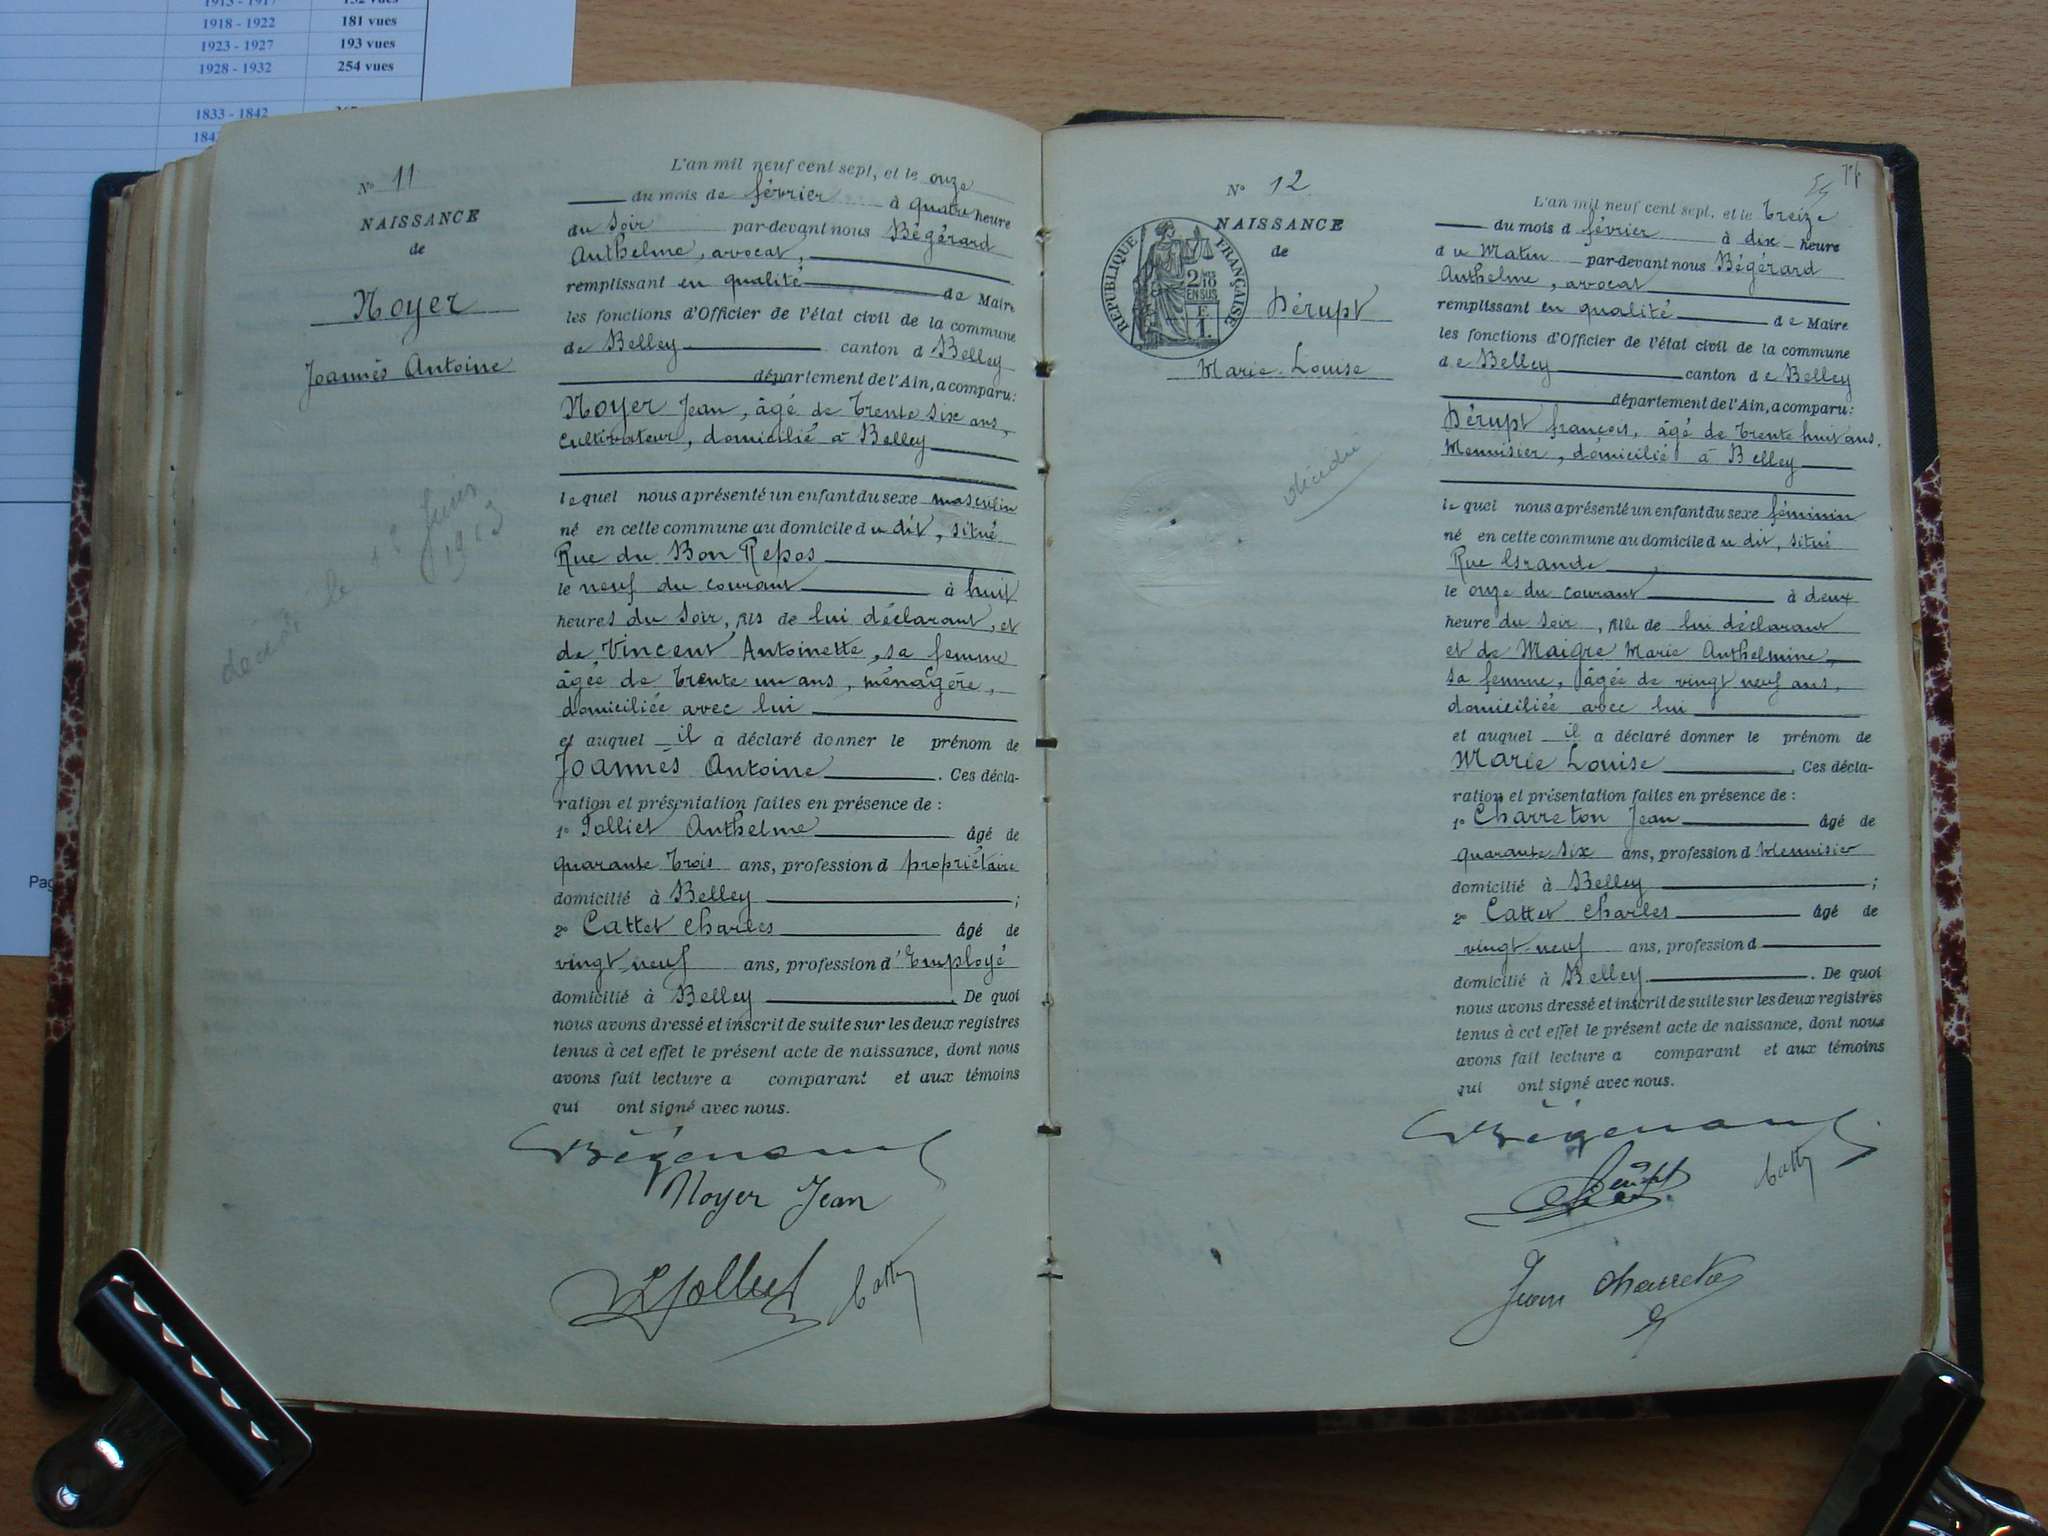 1913 - 1917 132 vues
1918 - 1922 181 vues
1923 - 1927 193 vues
1928 - 1932 254 vues
1833 - 1842
184
Pag
N° 11
NAISSANCE
de
Noyer
Joannès Antoine
décédé le 12 juin
1913
L'an mil neuf cent sept, et le onze
du mois de février à quatre heure
du soir par-devant nous Bégérard
Anthelme, avocat,
remplissant en qualité de Maire
les fonctions d'Officier de l'état civil de la commune
de Belley canton d Belley
département de l'Ain, a comparu:
Noyer Jean, âgé de trente six ans,
cultivateur, domicilié à Belley
lequel nous a présenté un enfant du sexe masculin
né en cette commune au domicile du dit, situé
Rue du Bon Repos
le neuf du courant à huit
heures du soir, fils de lui déclarant, et
de Vincent Antoinette, sa femme
âgée de trente un ans, ménagère,
domiciliée avec lui
et auquel il a déclaré donner le prénom de
Joannès Antoine. Ces décla-
ration et présentation faites en présence de :
1° Jolliet Anthelme âgé de
quarante trois ans, profession d propriétaire
domicilié à Belley ;
2° Cattet Charles âgé de
vingt neuf ans, profession d'Employé
domicilié à Belley. De quoi
nous avons dressé et inscrit de suite sur les deux registres
tenus à cet effet le présent acte de naissance, dont nous
avons fait lecture a comparant et aux témoins
qui ont signé avec nous.
Bégérard
Noyer Jean
Jolliet Catty
74
N° 12
NAISSANCE
de
RÉPUBLIQUE FRANÇAISE
2/10
EN SUS
F
1.
Dérupt
Marie-Louise
décédée
L'an mil neuf cent sept, et le treize
du mois d février à dix heure
du Matin par-devant nous Bégérard
Anthelme, avocat
remplissant en qualité de Maire
les fonctions d'Officier de l'état civil de la commune
de Belley canton de Belley
département de l'Ain, a comparu:
Dérupt françois, âgé de trente huit ans,
Menuisier, domicilié à Belley
lequel nous a présenté un enfant du sexe féminin
né en cette commune au domicile du dit, situé
Rue Grande
le onze du courant à deux
heure du soir, fille de lui déclarant
et de Maigre Marie Anthelmine,
sa femme, âgée de vingt neuf ans,
domiciliée avec lui
et auquel il a déclaré donner le prénom de
Marie Louise. Ces décla-
ration et présentation faites en présence de :
1° Charreton Jean âgé de
quarante six ans, profession d Menuisier
domicilié à Belley ;
2° Cattet Charles âgé de
vingt neuf ans, profession d
domicilié à Belley. De quoi
nous avons dressé et inscrit de suite sur les deux registres
tenus à cet effet le présent acte de naissance, dont nous
avons fait lecture a comparant et aux témoins
qui ont signé avec nous.
Bégérard
Catty
Jean Charreton